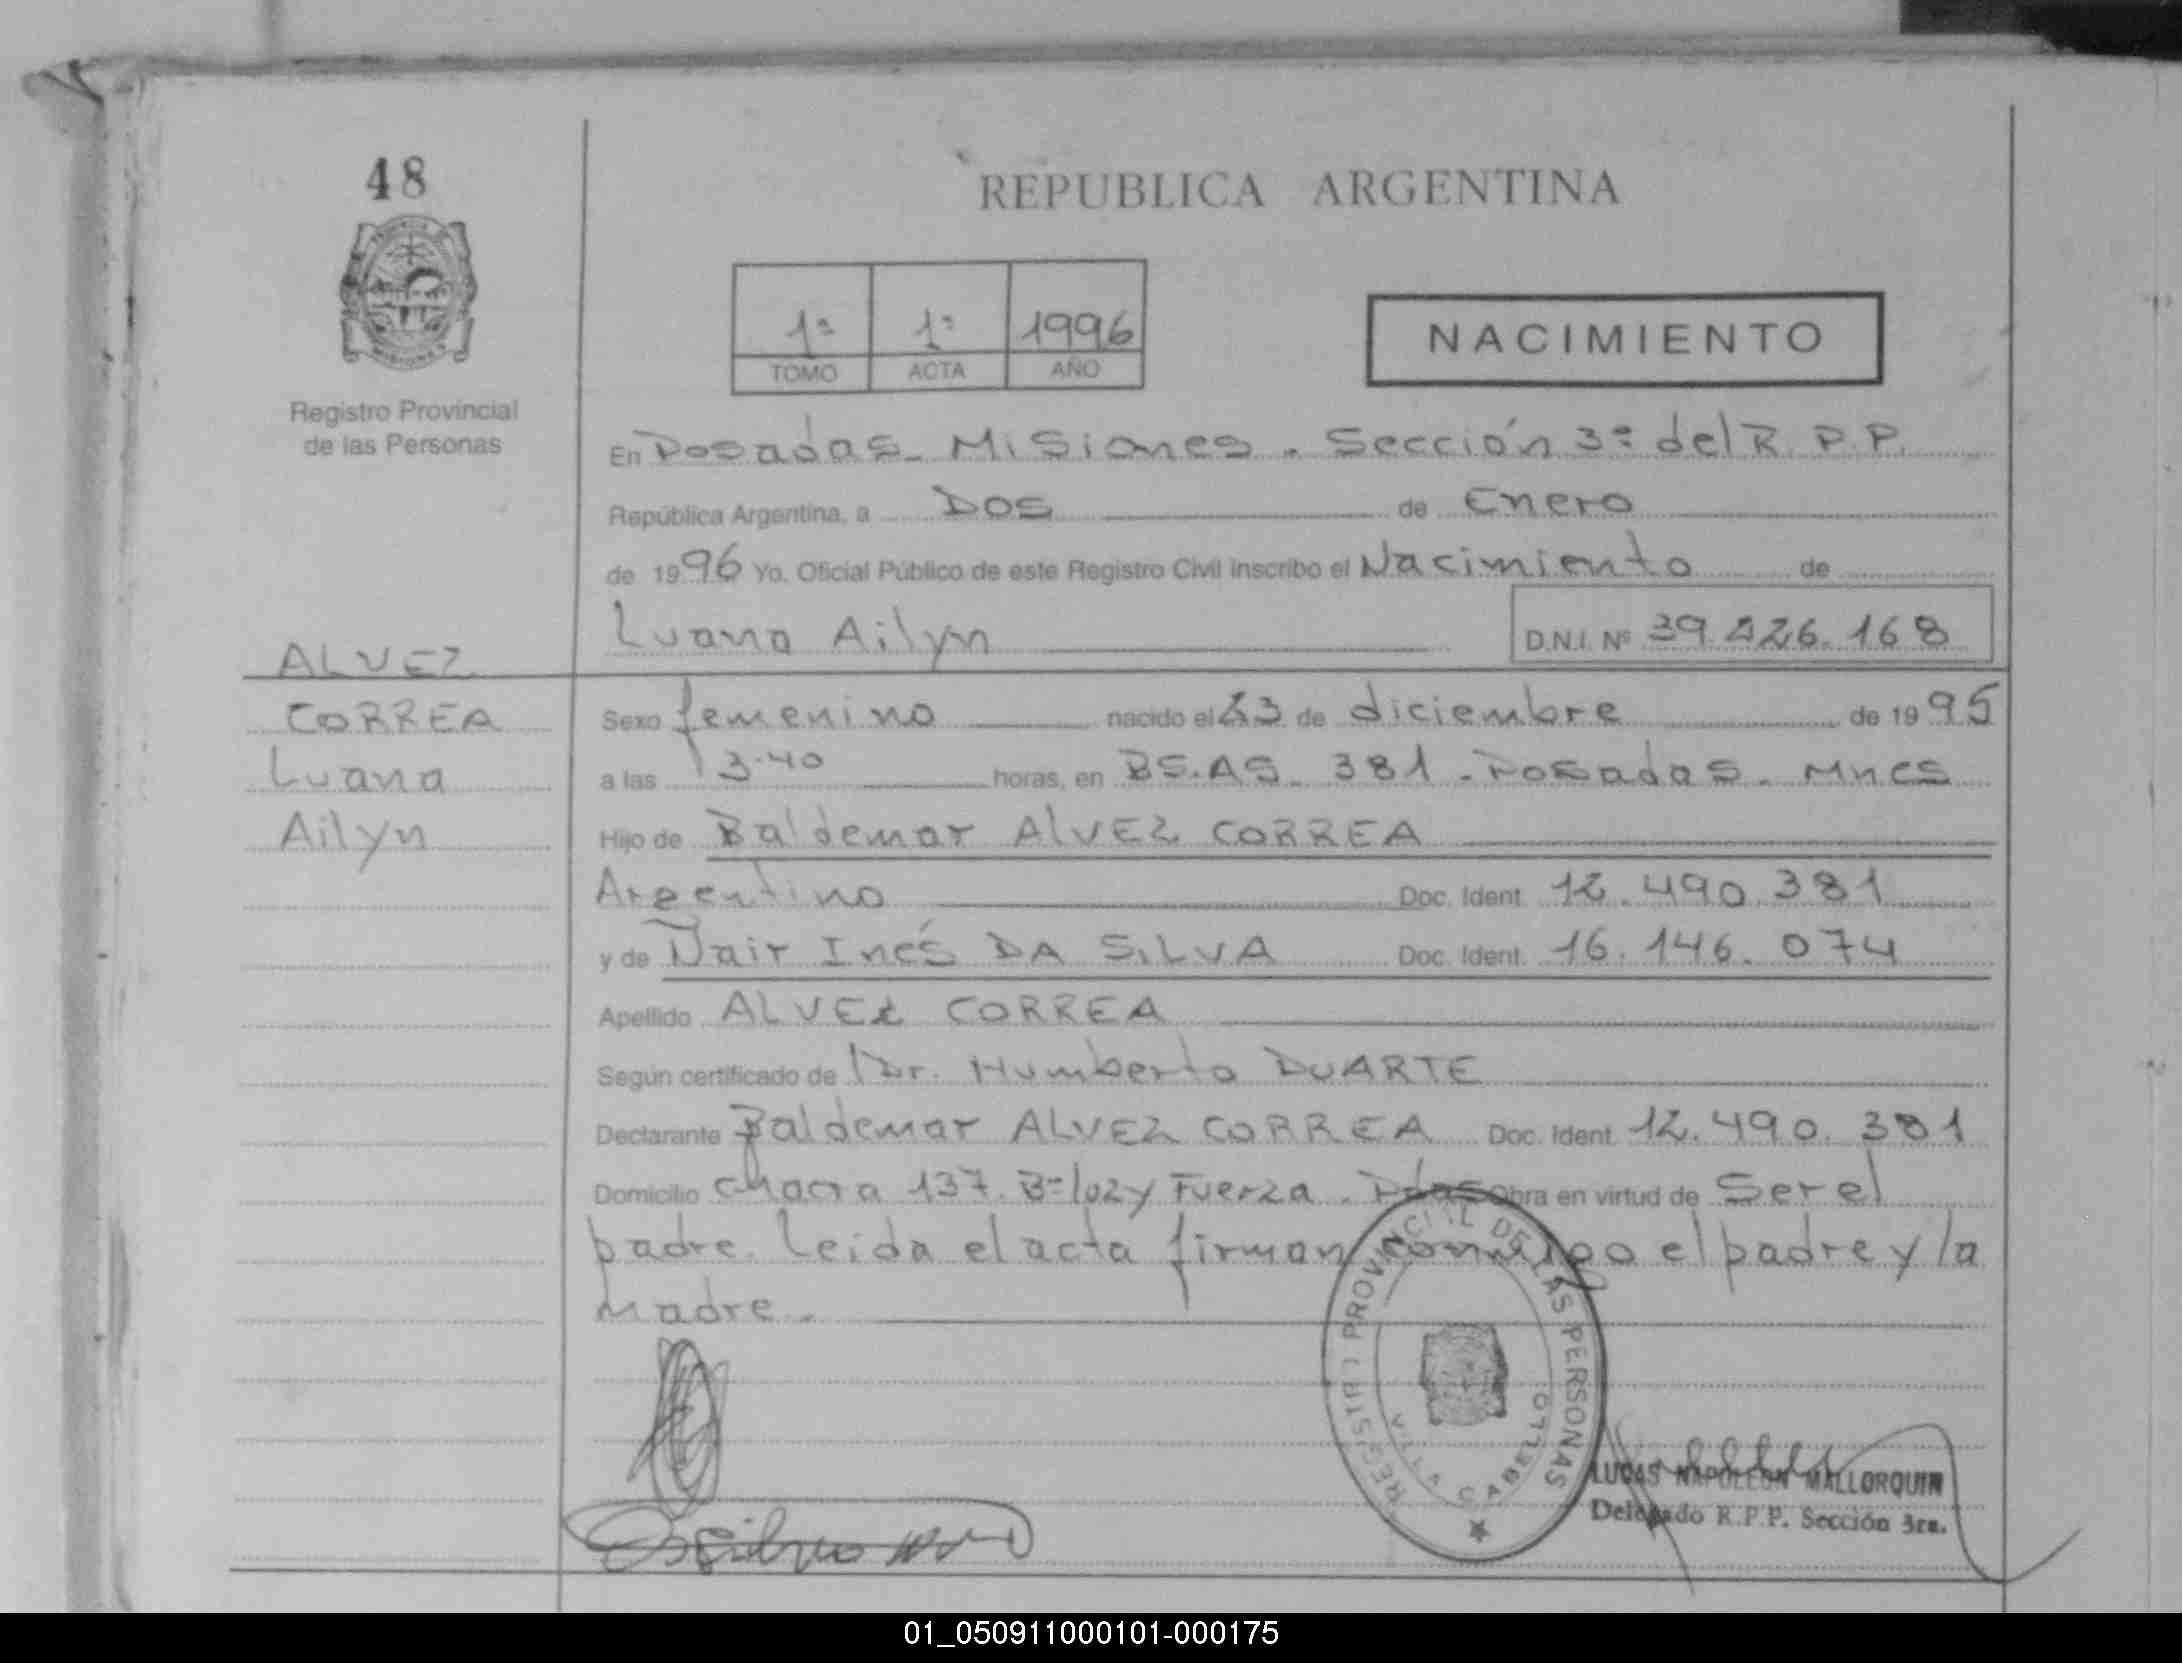 48
REPUBLICA ARGENTINA
1ª 1ª 1996
TOMO ACTA AÑO
NACIMIENTO
Registro Provincial
de las Personas
En Posadas - Misiones . Sección 3ª del R. P. P.
República Argentina, a Dos de Enero
de 1996 Yo, Oficial Público de este Registro Civil inscribo el Nacimiento de
Luana Ailyn D.N.I. Nº 39.226.168
ALVEZ
CORREA
Luana
Ailyn
Sexo femenino nacido el 23 de diciembre de 1995
a las 13.40 horas, en BS.AS. 381 - Posadas - Mnes
Hijo de Baldemar AlVEZ CORREA
Argentino Doc. Ident. 12.490.381
y de Nair Inés DA SILVA Doc. Ident. 16.146.074
Apellido ALVEZ CORREA
Según certificado de Dr. Humberto DUARTE
Declarante Baldemar ALVEZ CORREA Doc. Ident. 12.490.381
Domicilio chacra 137. Bº luz y Fuerza . Pdas Obra en virtud de Ser el
padre. Leida el acta firman conmigo el padre y la
madre.
REGISTRO PROVINCIAL DE LAS PERSONAS
VILLA CABELLO
LUCAS NAPOLEON MALLORQUIN
Delegado R.P.P. Sección 3ra.
01_050911000101-000175